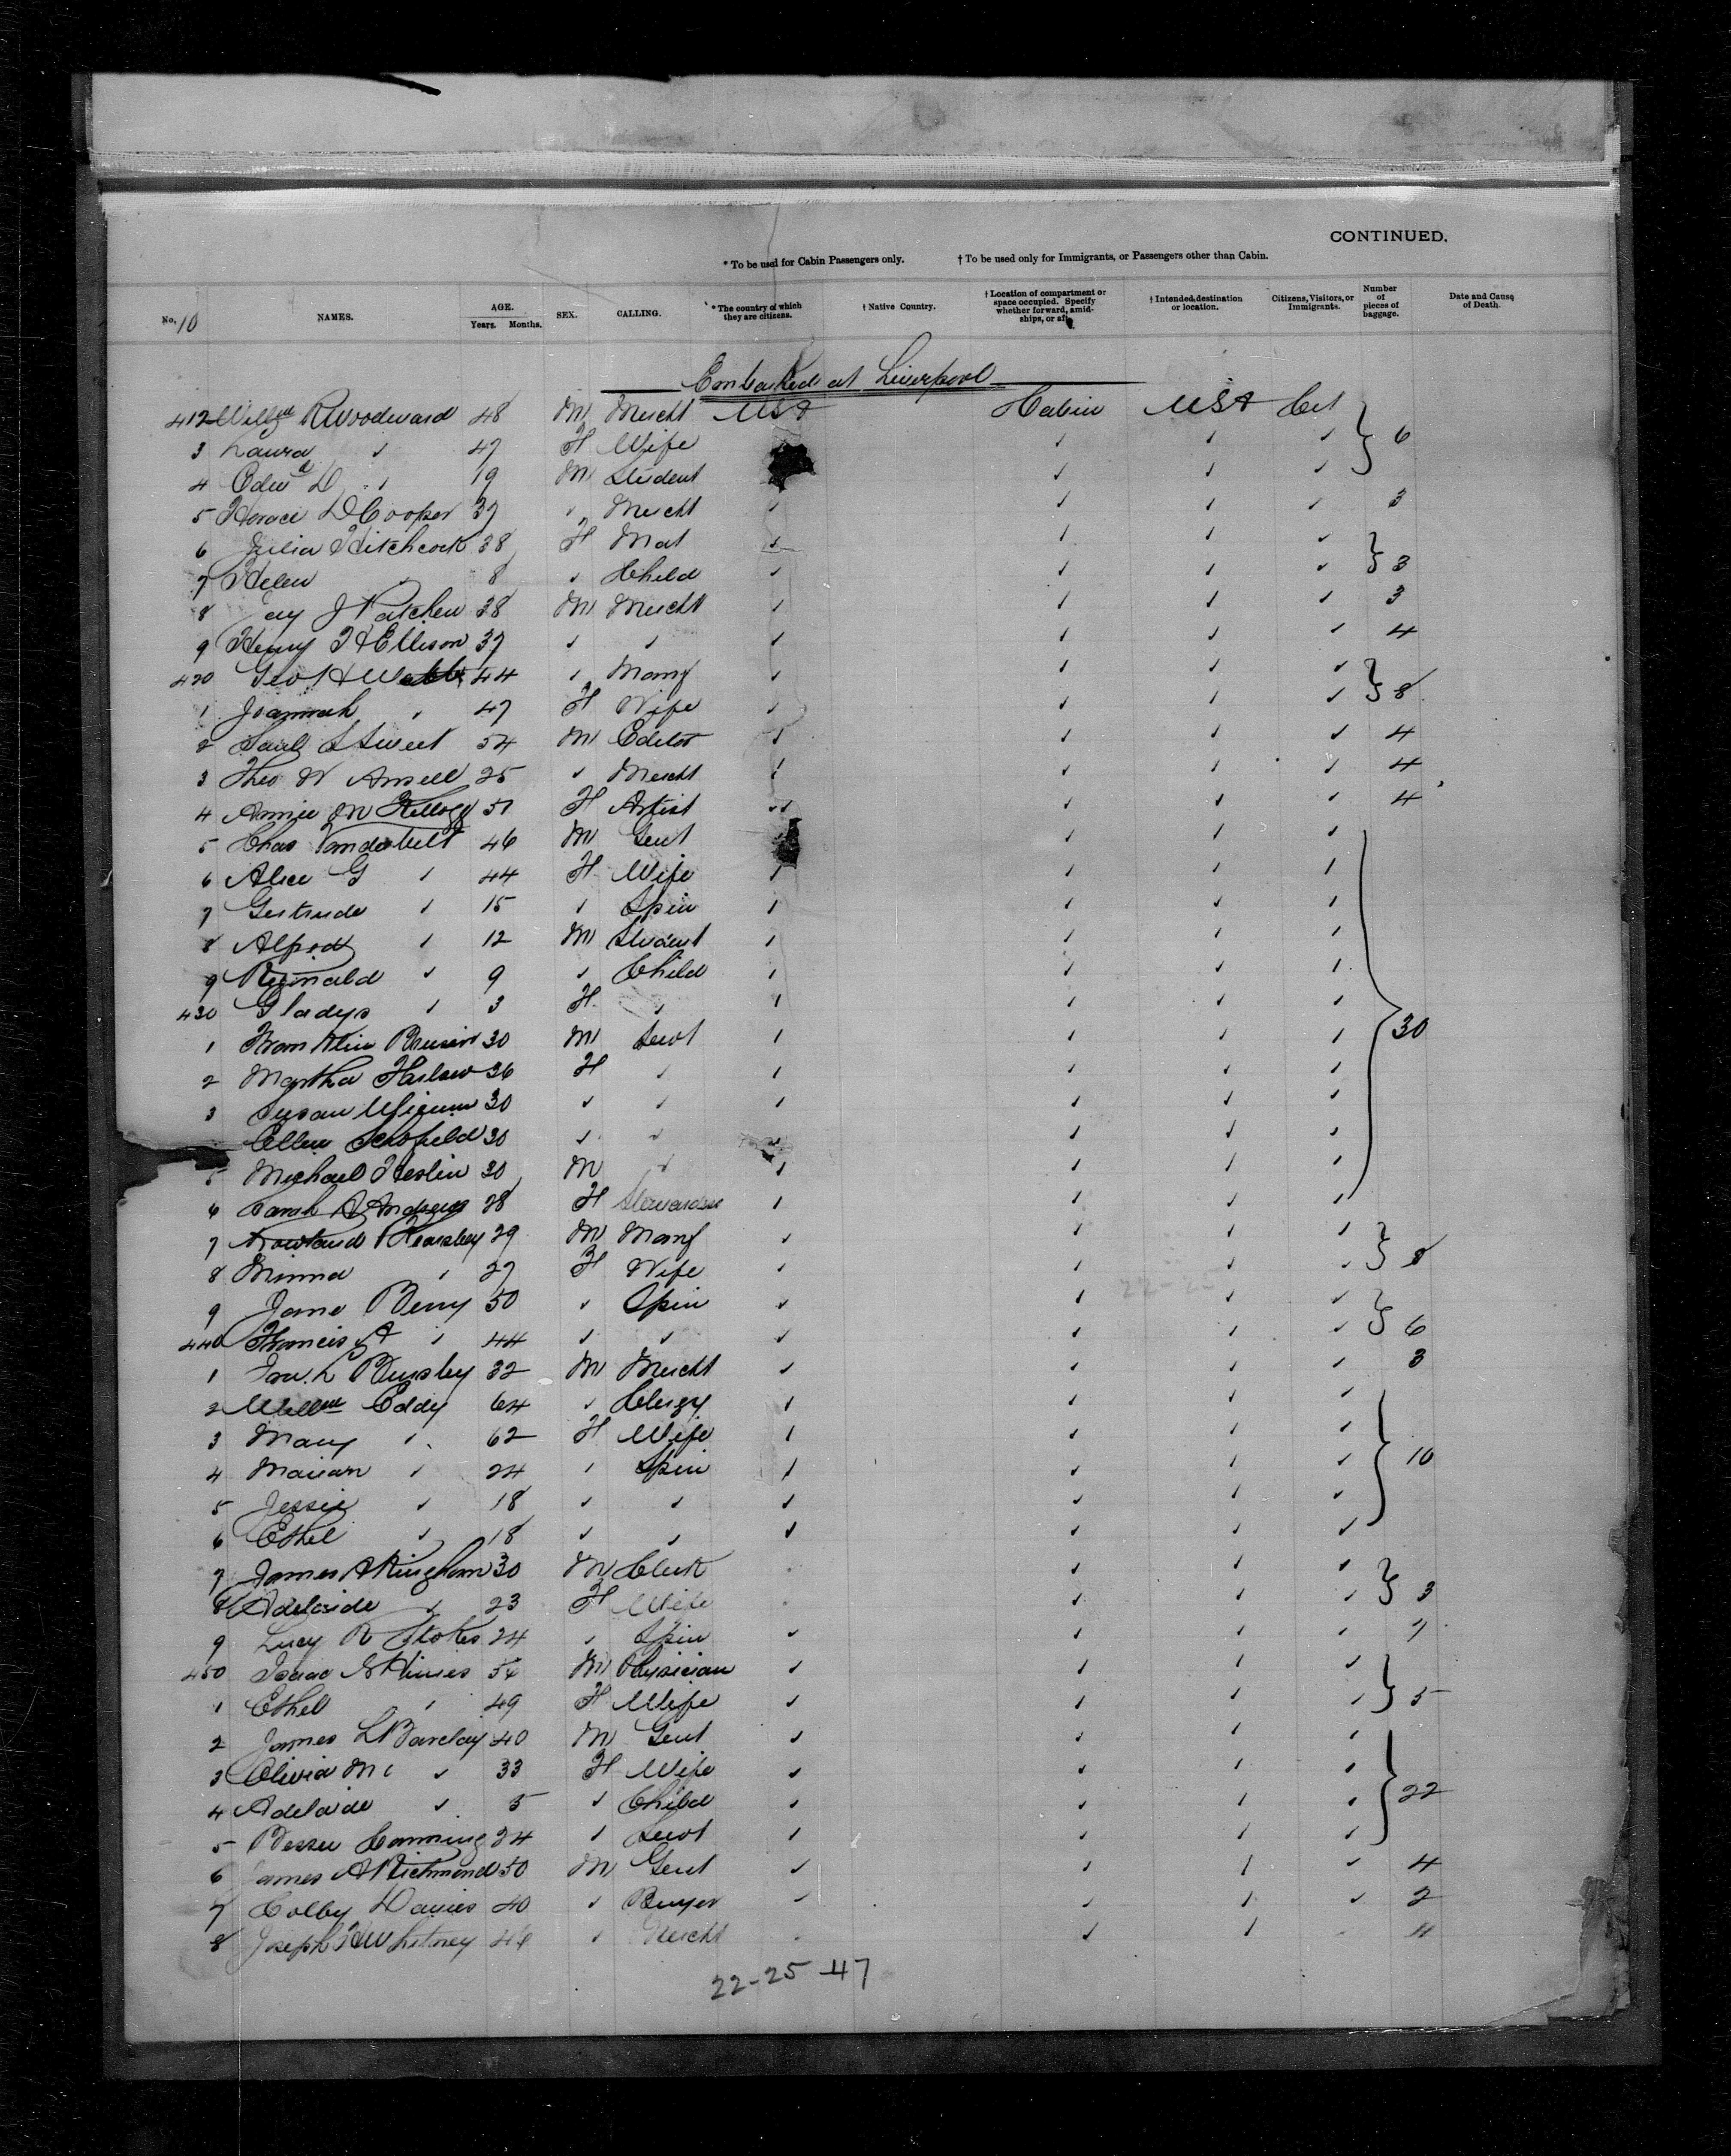 CONTINUED.
* To be used for Cabin Passengers only. † To be used only for Immigrants, or Passengers other than Cabin.
No. 10 NAMES. AGE. Years. Months. SEX. CALLING. * The country of which they are citizens. † Native Country. † Location of compartment or space occupied. Specify whether forward, amidships, or aft. † Intended destination or location. Citizens, Visitors, or Immigrants. Number of pieces of baggage. Date and Cause of Death.
Embarked at Liverpool
412 Willm R Woodward 48 M Mercht USA Cabin USA Cit
3 Laura ✓ 47 F Wife ✓ ✓ ✓ 6
4 Edwd D ✓ 19 M Student ✓ ✓ ✓
5 Horace D Cooper 37 ✓ Mercht ✓ ✓ ✓ ✓ 3
6 Julia Hitchcock 38 F Mat ✓ ✓ ✓ ✓
7 Helen ✓ 8 ✓ Child ✓ ✓ ✓ ✓ 3
8 J Patchen 38 M Mercht ✓ ✓ ✓ ✓ 3
9 Henry H Ellison 37 ✓ ✓ ✓ ✓ ✓ ✓ 4
420 Geo H 44 ✓ Manf ✓ ✓ ✓ ✓
1 Joannah ✓ 47 F Wife ✓ ✓ ✓ ✓ 8
2 Saul S Sweet 54 M Editor ✓ ✓ ✓ ✓ 4
3 Theo W Ansell 25 ✓ Mercht ✓ ✓ ✓ ✓ 4
4 Annie M Kellogg 51 F Artist ✓ ✓ ✓ ✓ 4
5 Chas Vanderbilt 46 M Gent ✓ ✓ ✓
6 Alice G ✓ 44 F Wife ✓ ✓ ✓ ✓
7 Gertrude ✓ 15 ✓ Spin ✓ ✓ ✓ ✓
8 Alfred ✓ 12 M Student ✓ ✓ ✓ ✓
9 Reginald ✓ 9 ✓ Child ✓ ✓ ✓ ✓
430 Gladys ✓ 3 F ✓ ✓ ✓ ✓ ✓
1 Franklin 30 M Servt ✓ ✓ ✓ ✓ 30
2 Martha Harlow 36 F ✓ ✓ ✓ ✓ ✓
3 Susan 30 ✓ ✓ ✓ ✓ ✓ ✓
Ellen Schofield 30 ✓ ✓ ✓ ✓ ✓ ✓
5 Michael Heslin 30 M ✓ ✓ ✓ ✓ ✓
6 Sarah A Andrews 28 F Stewardess ✓ ✓ ✓ ✓
7 Rowland Hearsley 29 M Manf ✓ ✓ ✓ ✓
8 Minna ✓ 27 F Wife ✓ ✓ ✓ ✓ 8
9 Jane Berry 50 ✓ Spin ✓ ✓ ✓ ✓
440 Francis A ✓ 44 ✓ ✓ ✓ ✓ ✓ ✓ 6
1 L 32 M Mercht ✓ ✓ ✓ ✓ 3
2 Willm Eddy 64 ✓ Clergy ✓ ✓ ✓ ✓
3 Mary ✓ 62 F Wife ✓ ✓ ✓ ✓
4 Marian ✓ 24 ✓ Spin ✓ ✓ ✓ ✓ 10
5 Jessie ✓ 18 ✓ ✓ ✓ ✓ ✓ ✓
6 Ethel ✓ 18 ✓ ✓ ✓ ✓ ✓ ✓
7 James A Kingham 30 M Clerk ✓ ✓ ✓
8 Adelaide ✓ 23 F Wife ✓ ✓ ✓ 3
9 Lucy R Stokes 24 ✓ Spin ✓ ✓ ✓ ✓ 7
450 Isaac N Himes 54 M Physician ✓ ✓ ✓ ✓
1 Ethel ✓ 49 F Wife ✓ ✓ ✓ ✓ 5
2 James L Barclay 40 M Gent ✓ ✓ ✓ ✓
3 Olivia M ✓ 33 F Wife ✓ ✓ ✓ ✓
4 Adelaide ✓ 5 ✓ Child ✓ ✓ ✓ ✓ 22
5 Bessie Canning 24 ✓ Servt ✓ ✓ ✓ ✓
6 James A Richmond 50 M Gent ✓ ✓ ✓ ✓ 4
7 Colby Davies 40 ✓ Buyer ✓ ✓ ✓ ✓ 2
8 Joseph H Whitney 46 ✓ Mercht ✓ ✓ 11
22-25-47